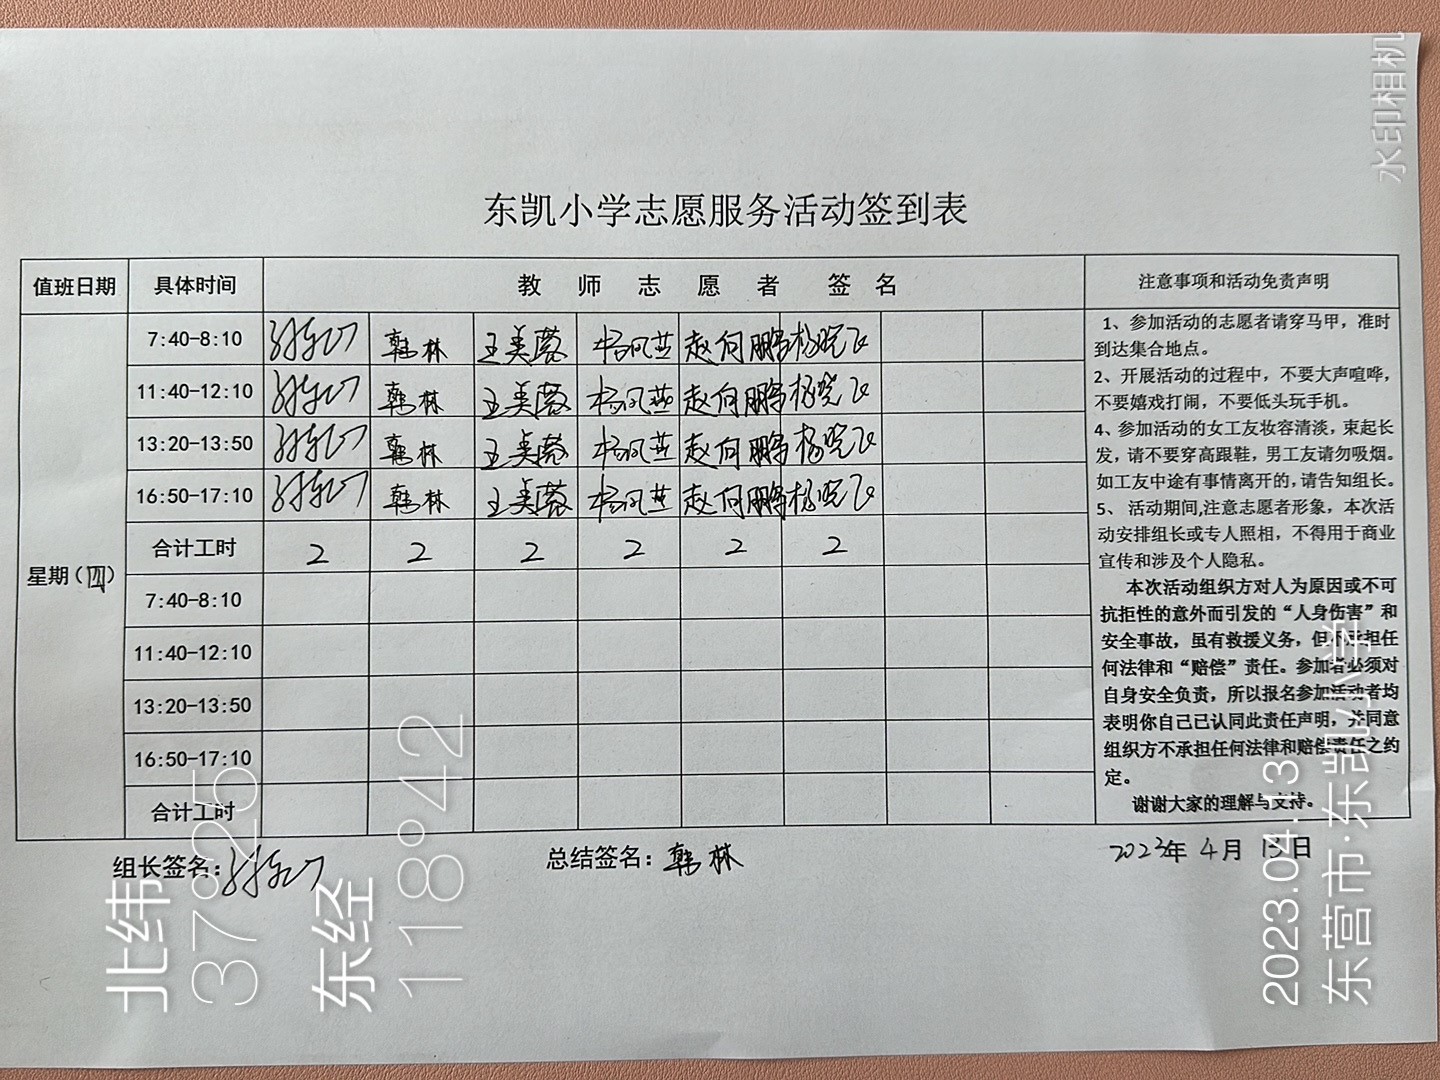 水印相机
东凯小学志愿服务活动签到表
值班日期 具体时间 教师志愿者签名 注意事项和活动免责声明
7:40-8:10 韩林 王美蓉 杨凤燕 赵向鹏 杨晓飞
11:40-12:10 韩林 王美蓉 杨凤燕 赵向鹏 杨晓飞
13:20-13:50 韩林 王美蓉 杨凤燕 赵向鹏 杨晓飞
16:50-17:10 韩林 王美蓉 杨凤燕 赵向鹏 杨晓飞
合计工时 2 2 2 2 2 2
星期(四)
7:40-8:10
11:40-12:10
13:20-13:50
16:50-17:10
合计工时
1、参加活动的志愿者请穿马甲，准时
到达集合地点。
2、开展活动的过程中，不要大声喧哗，
不要嬉戏打闹，不要低头玩手机。
4、参加活动的女工友妆容清淡，束起长
发，请不要穿高跟鞋，男工友请勿吸烟。
如工友中途有事情离开的，请告知组长。
5、活动期间,注意志愿者形象，本次活
动安排组长或专人照相，不得用于商业
宣传和涉及个人隐私。
本次活动组织方对人为原因或不可
抗拒性的意外而引发的“人身伤害”和
安全事故，虽有救援义务，但不承担任
何法律和“赔偿”责任。参加者必须对
自身安全负责，所以报名参加活动者均
表明你自己已认同此责任声明，并同意
组织方不承担任何法律和赔偿责任之约
定。
谢谢大家的理解与支持。
组长签名: 总结签名: 韩林 2023年 4月 13日
北纬
37°25
东经
118°42
2023.04.13
东营市·东凯小学